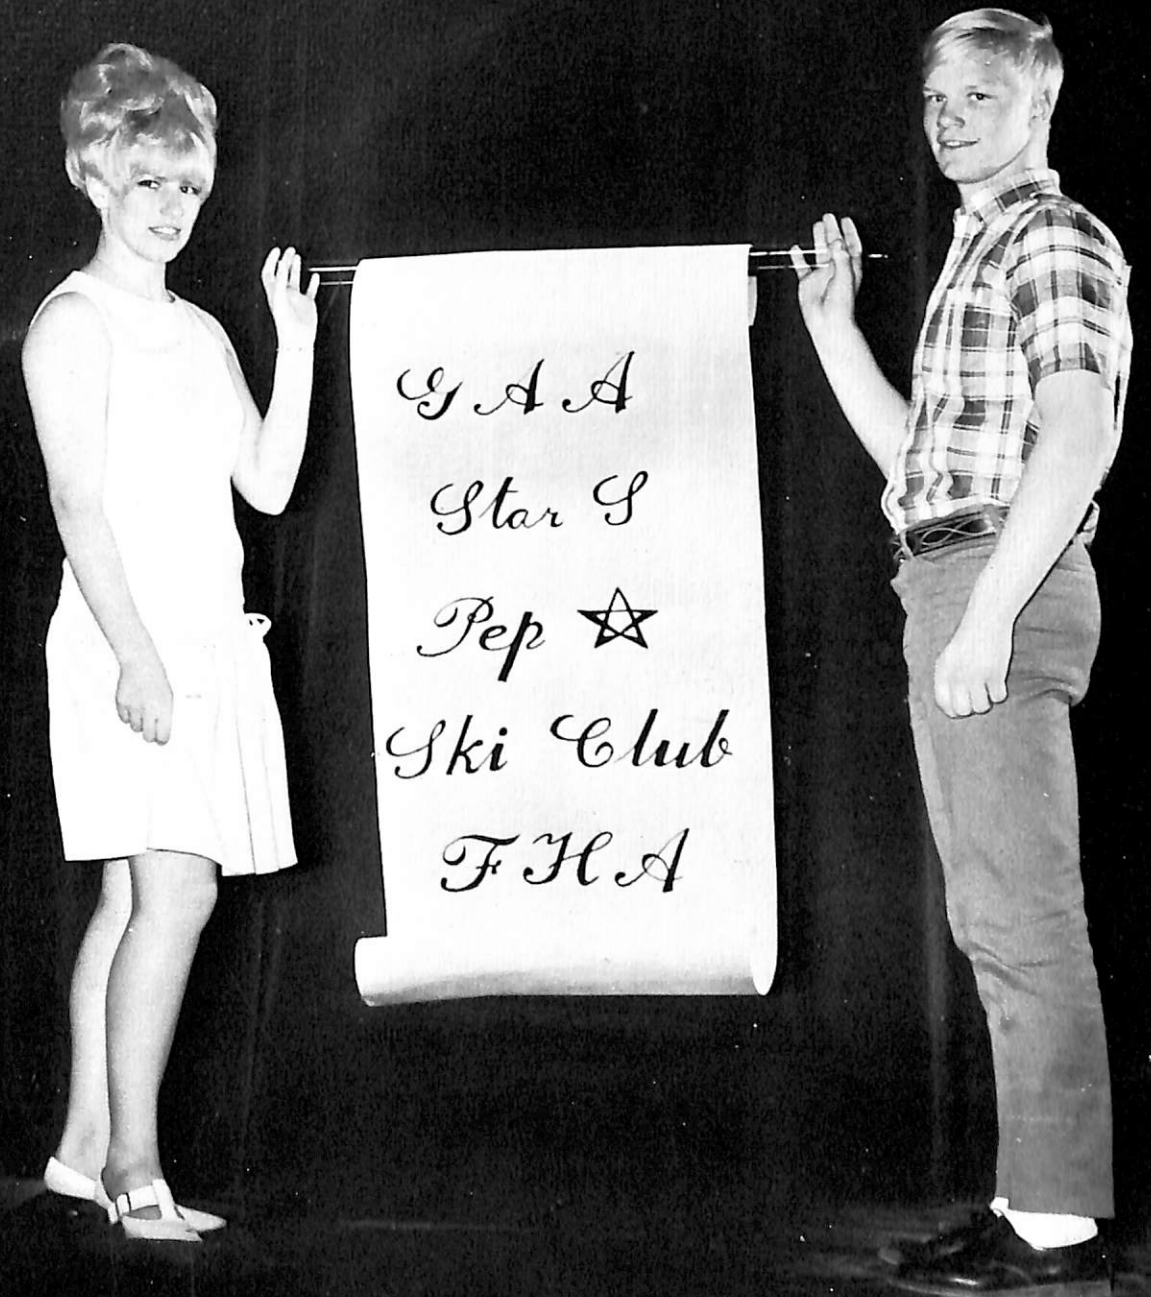 G A A
Star S
Pep ☆
Ski Club
F H A